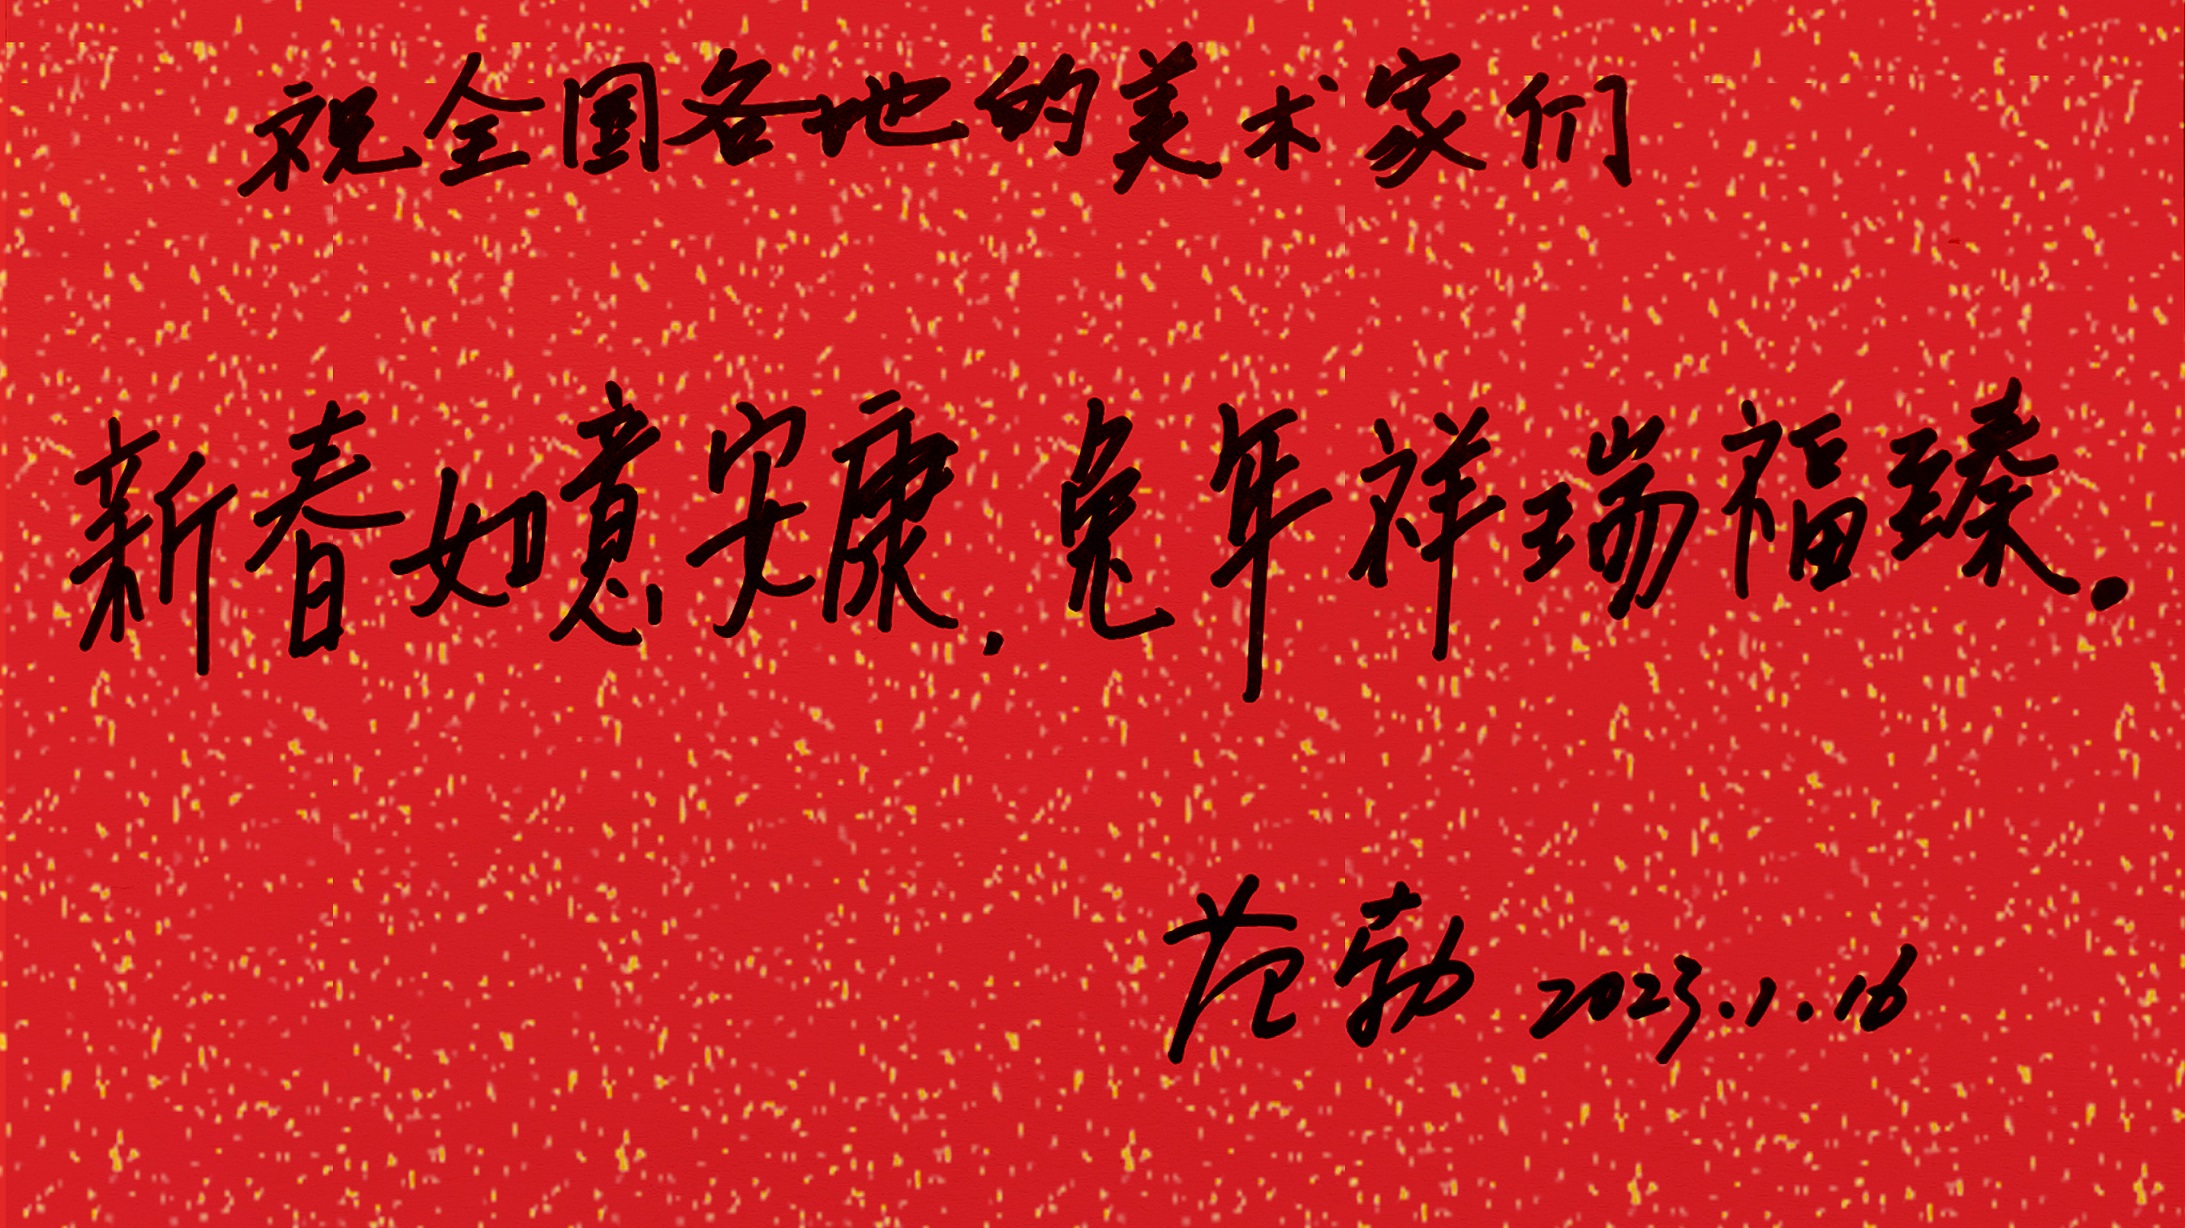 祝全国各地的美术家们
新春如意安康，兔年祥瑞福臻。
范勃 2023.1.16